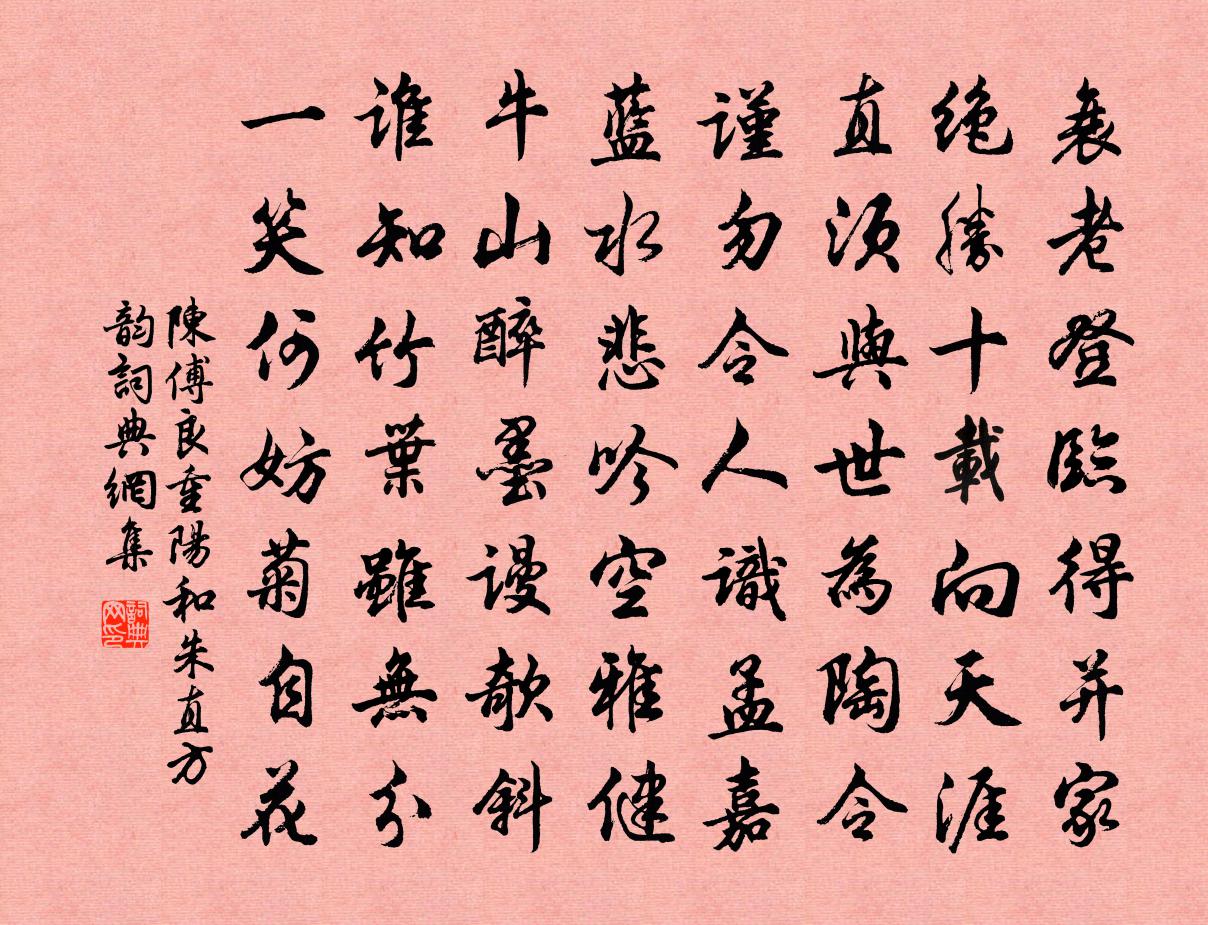 衰老登臨得并家
絶勝十載向天涯
直須與世為陶令
謹勿令人識孟嘉
藍水悲吟空雅健
牛山醉墨謾欹斜
誰知竹葉雖無分
一笑何妨菊自花
陳傅良重陽和朱直方
韵詞典網集
詞典网印